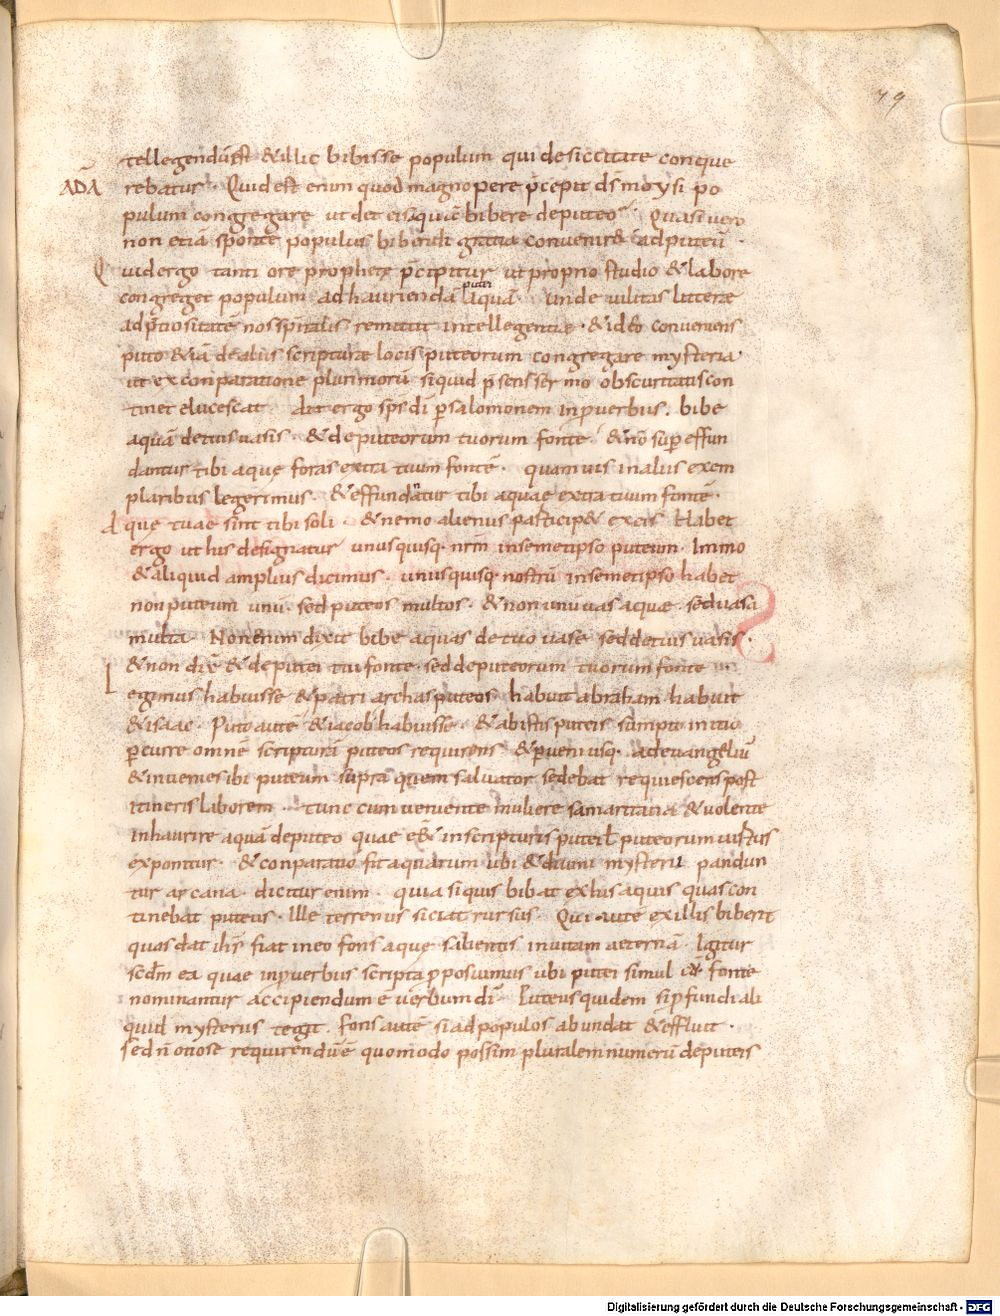 79
tellegendū est &illic bibisse populum qui de siccitate conque
ADĀ rebatur. Quid est enim quod magnopere p̄cepit d̄s moysi po
pulum congregare ut det eis aquā bibere de puteo. Quasi vero
non etiā sponte populus bibendi gratia convenir& ad puteū.
Quid ergo tanti ore prophetę p̄cipitur ut proprio studio & labore
congreget populum ad hauriendā putei aquā. Unde vilitas litterae
ad p̄tiositatē nos sp̄italis remittit intellegentie. & ideo conveniens
puto &iā de aliis scripturae locis puteorum congregare mysteria
ut ex conparatione plurimorū si quid p̄sens sermo obscuritatis con
tinet elucescat. Ait ergo sp̄s dī p̄ salomonem in p̄verbiis. bibe
aquā de tuis vasis. & de puteorum tuorum fonte. & nō sup effun
dantur tibi aque foras extra tuum fontē. quamvis in aliis exem
plaribus legerimus. & effundātur tibi aquae extra tuum fontē.
Aque tuae sint tibi soli. & nemo alienus particip& ex eis. Habet
ergo ut his designatur unusquisq. nrm in semetipso puteum. Immo
& aliquid amplius dicimus. unusquisq. nostrū in semetipso habet
non puteum unū. sed puteos multos. & non unū vas aquae. sed vasa
multa. Non enim dixit bibe aquas de tuo vase sed de tuis vasis.
& non dix̄ & de putei tui fonte. sed de puteorum tuorum fonte
Legimus habuisse & patriarchas puteos habuit abraham habuit
& isaac. Puto autē & iacob habuisse. & ab istis puteis sumpto initio
p̄curre omnē scripturā puteos requirens & p̄veni usq. ad evangeliū
& invenies ibi puteum supra quem salvator sedebat requiescens post
itineris laborem. tunc cum veniente muliere samaritana & volente
inhaurire aquā de puteo quae e& in scripturis putei ł puteorum virtus
exponitur. & conparatio fit aquarum ubi & divini mysterii pandun
tur arcana. dicitur enim. quia si quis bibat ex his aquis quas con
tinebat puteus. Ille terrenus siciat rursus. Qui autē ex illis biberit
quas dat ih̄s fiat in eo fons aquę salientis in vitam aeternā. Igitur
scdm ea quae in p̄verbiis scripta p̄posuimus ubi putei simul & fonte
nominantur accipiendum ē verbum dī. Puteus quidem si p̄fundi ali
quid mysterii tegit. fons autē si ad populos abundat & effluit.
sed n̄ otiose requirendū ē quomodo possim pluralem numerū de puteis
Digitalisierung gefördert durch die Deutsche Forschungsgemeinschaft - DFG